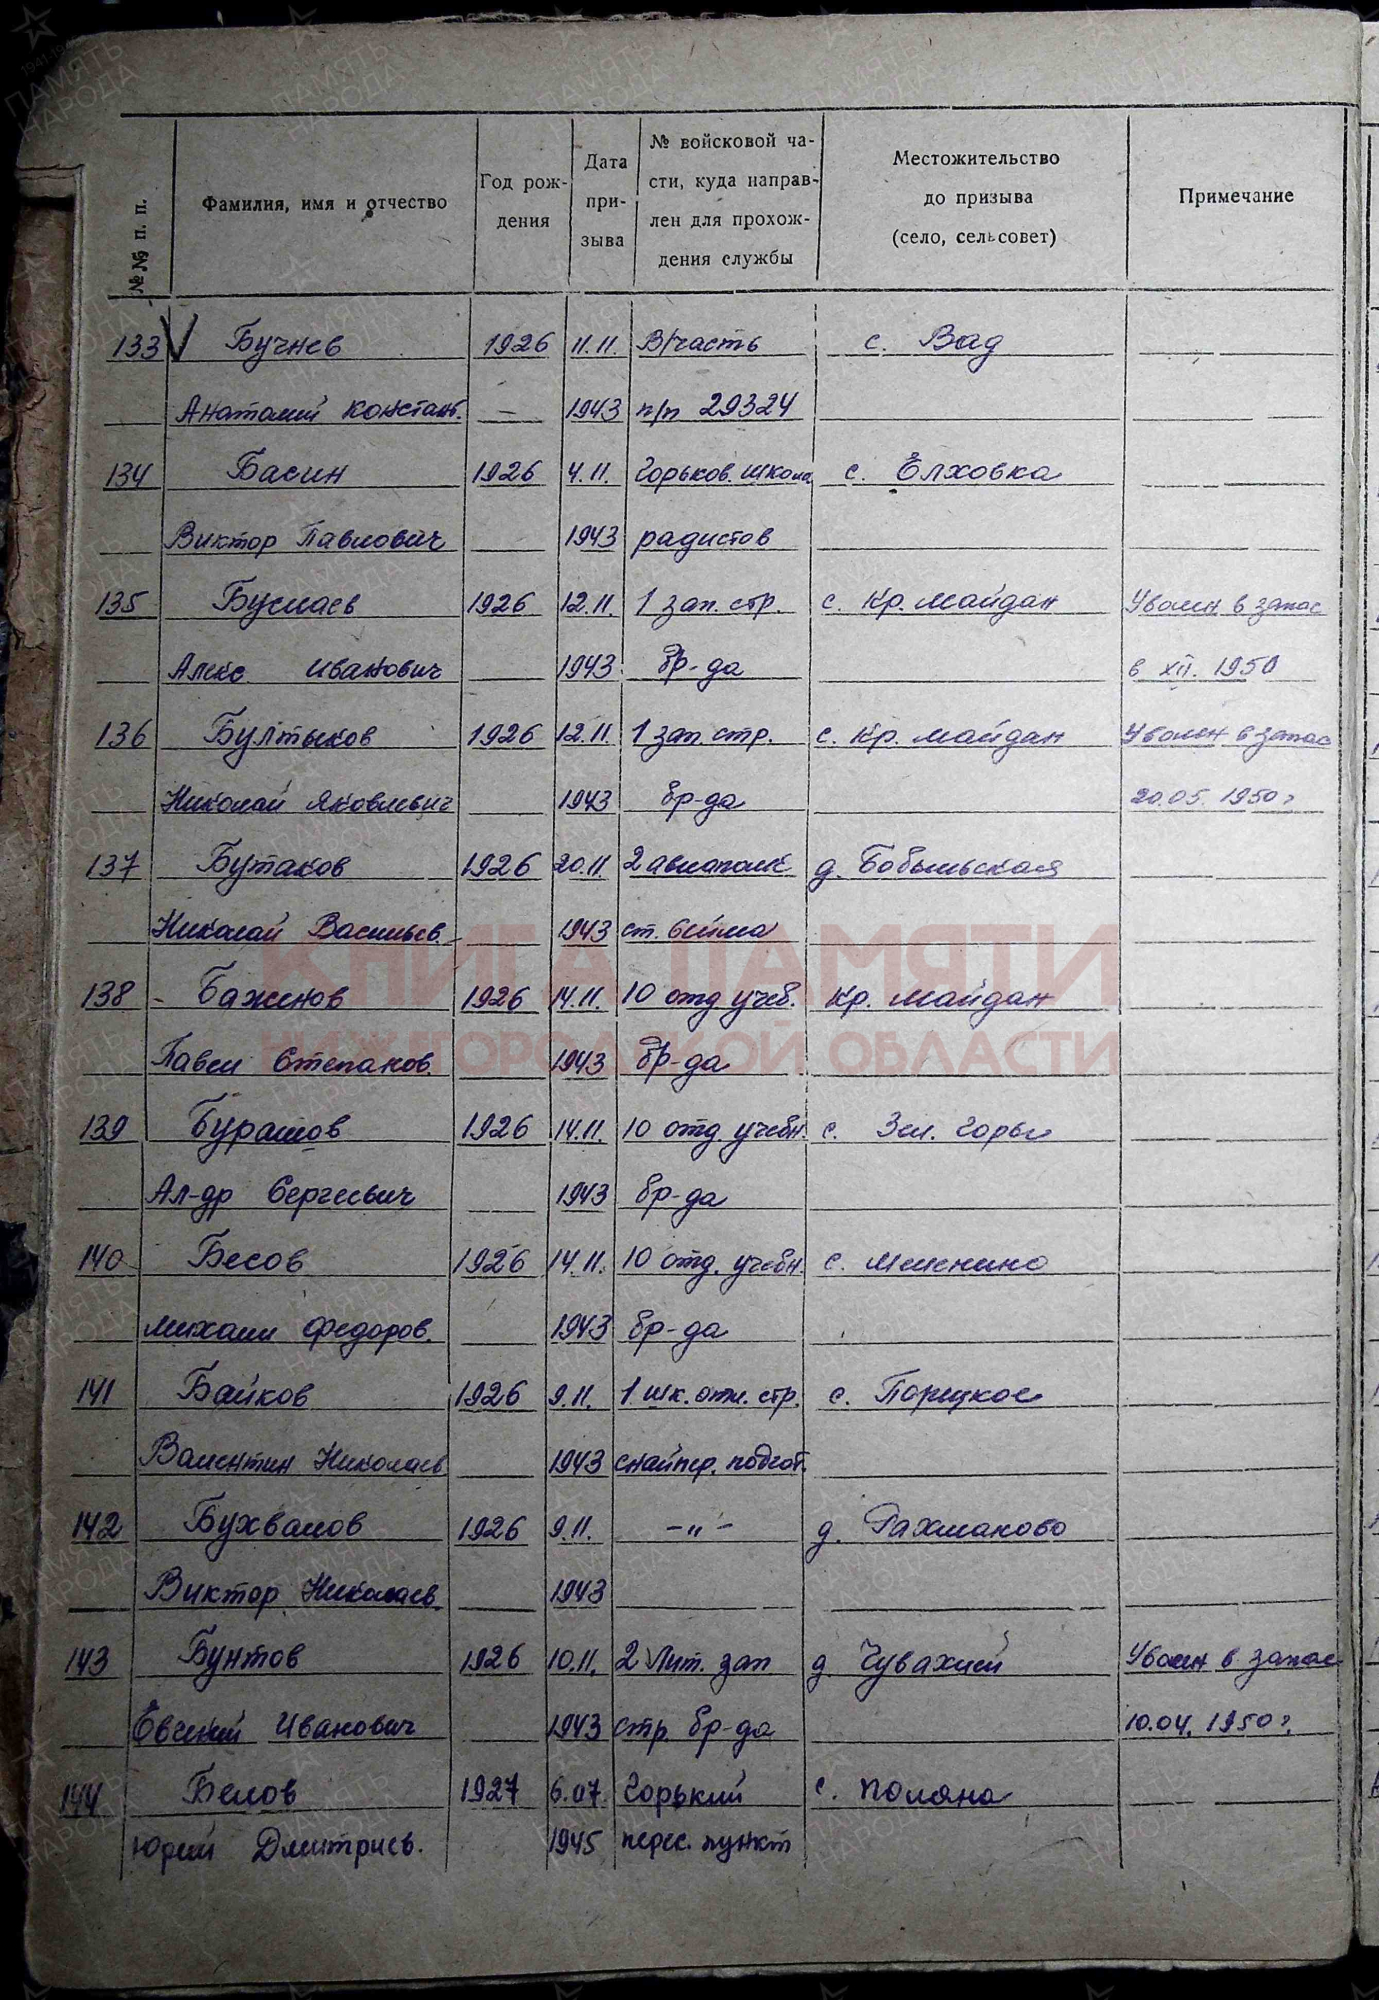 №№ п. п.
Фамилия, имя и отчество
Год рож-
дения
Дата
при-
зыва
№ войсковой ча-
сти, куда направ-
лен для прохож-
дения службы
Местожительство
до призыва
(село, сельсовет)
Примечание
133 V Бучнев 1926 11.11. В/часть с. Вад
Анатолий Констант. — 1943 п/п 29324
134 Басин 1926 4.11. Горьков. школа с. Елховка
Виктор Павлович 1943 радистов
135 Буслаев 1926 12.11. 1 зап. стр. с. Кр. Майдан Уволен в запас
Алекс. Иванович 1943 бр-да в XII. 1950
136 Булттыков 1926 12.11. 1 зап. стр. с. Кр. Майдан Уволен в запас
Николай Яковлевич 1943 бр-да 20.05. 1950 г
137 Бутаков 1926 20.11. 2 авиаполк д. Бобыльская
Николай Васильев. 1943 ст. Сейма
138 Баженов 1926 14.11. 10 отд. учеб. Кр. Майдан
Павел Степанов. 1943 бр-да
139 Бурашов 1926 14.11. 10 отд. учебн. с. Зел. Горы
Ал-др Сергеевич 1943 бр-да
140 Бесов 1926 14.11. 10 отд. учебн. с.
Михаил Федоров. 1943 бр-да
141 Байков 1926 9.11. 1 шк. отл. стр. с. Порецкое
Валентин Николаев 1943 снайпер. подгот.
142 Бухвалов 1926 9.11. —"— д. Рахманово
Виктор Николаев. 1943
143 Бунтов 1926 10.11. 2 Лит. зап д. Чувахлей Уволен в запас
Евгений Иванович 1943 стр. бр-да 10.04. 1950 г.
144 Белов 1927 6.07. Горький с. Поляна
Юрий Дмитриев. 1945 перес. пункт
КНИГА ПАМЯТИ
НИЖЕГОРОДСКОЙ ОБЛАСТИ
ПАМЯТЬ
НАРОДА